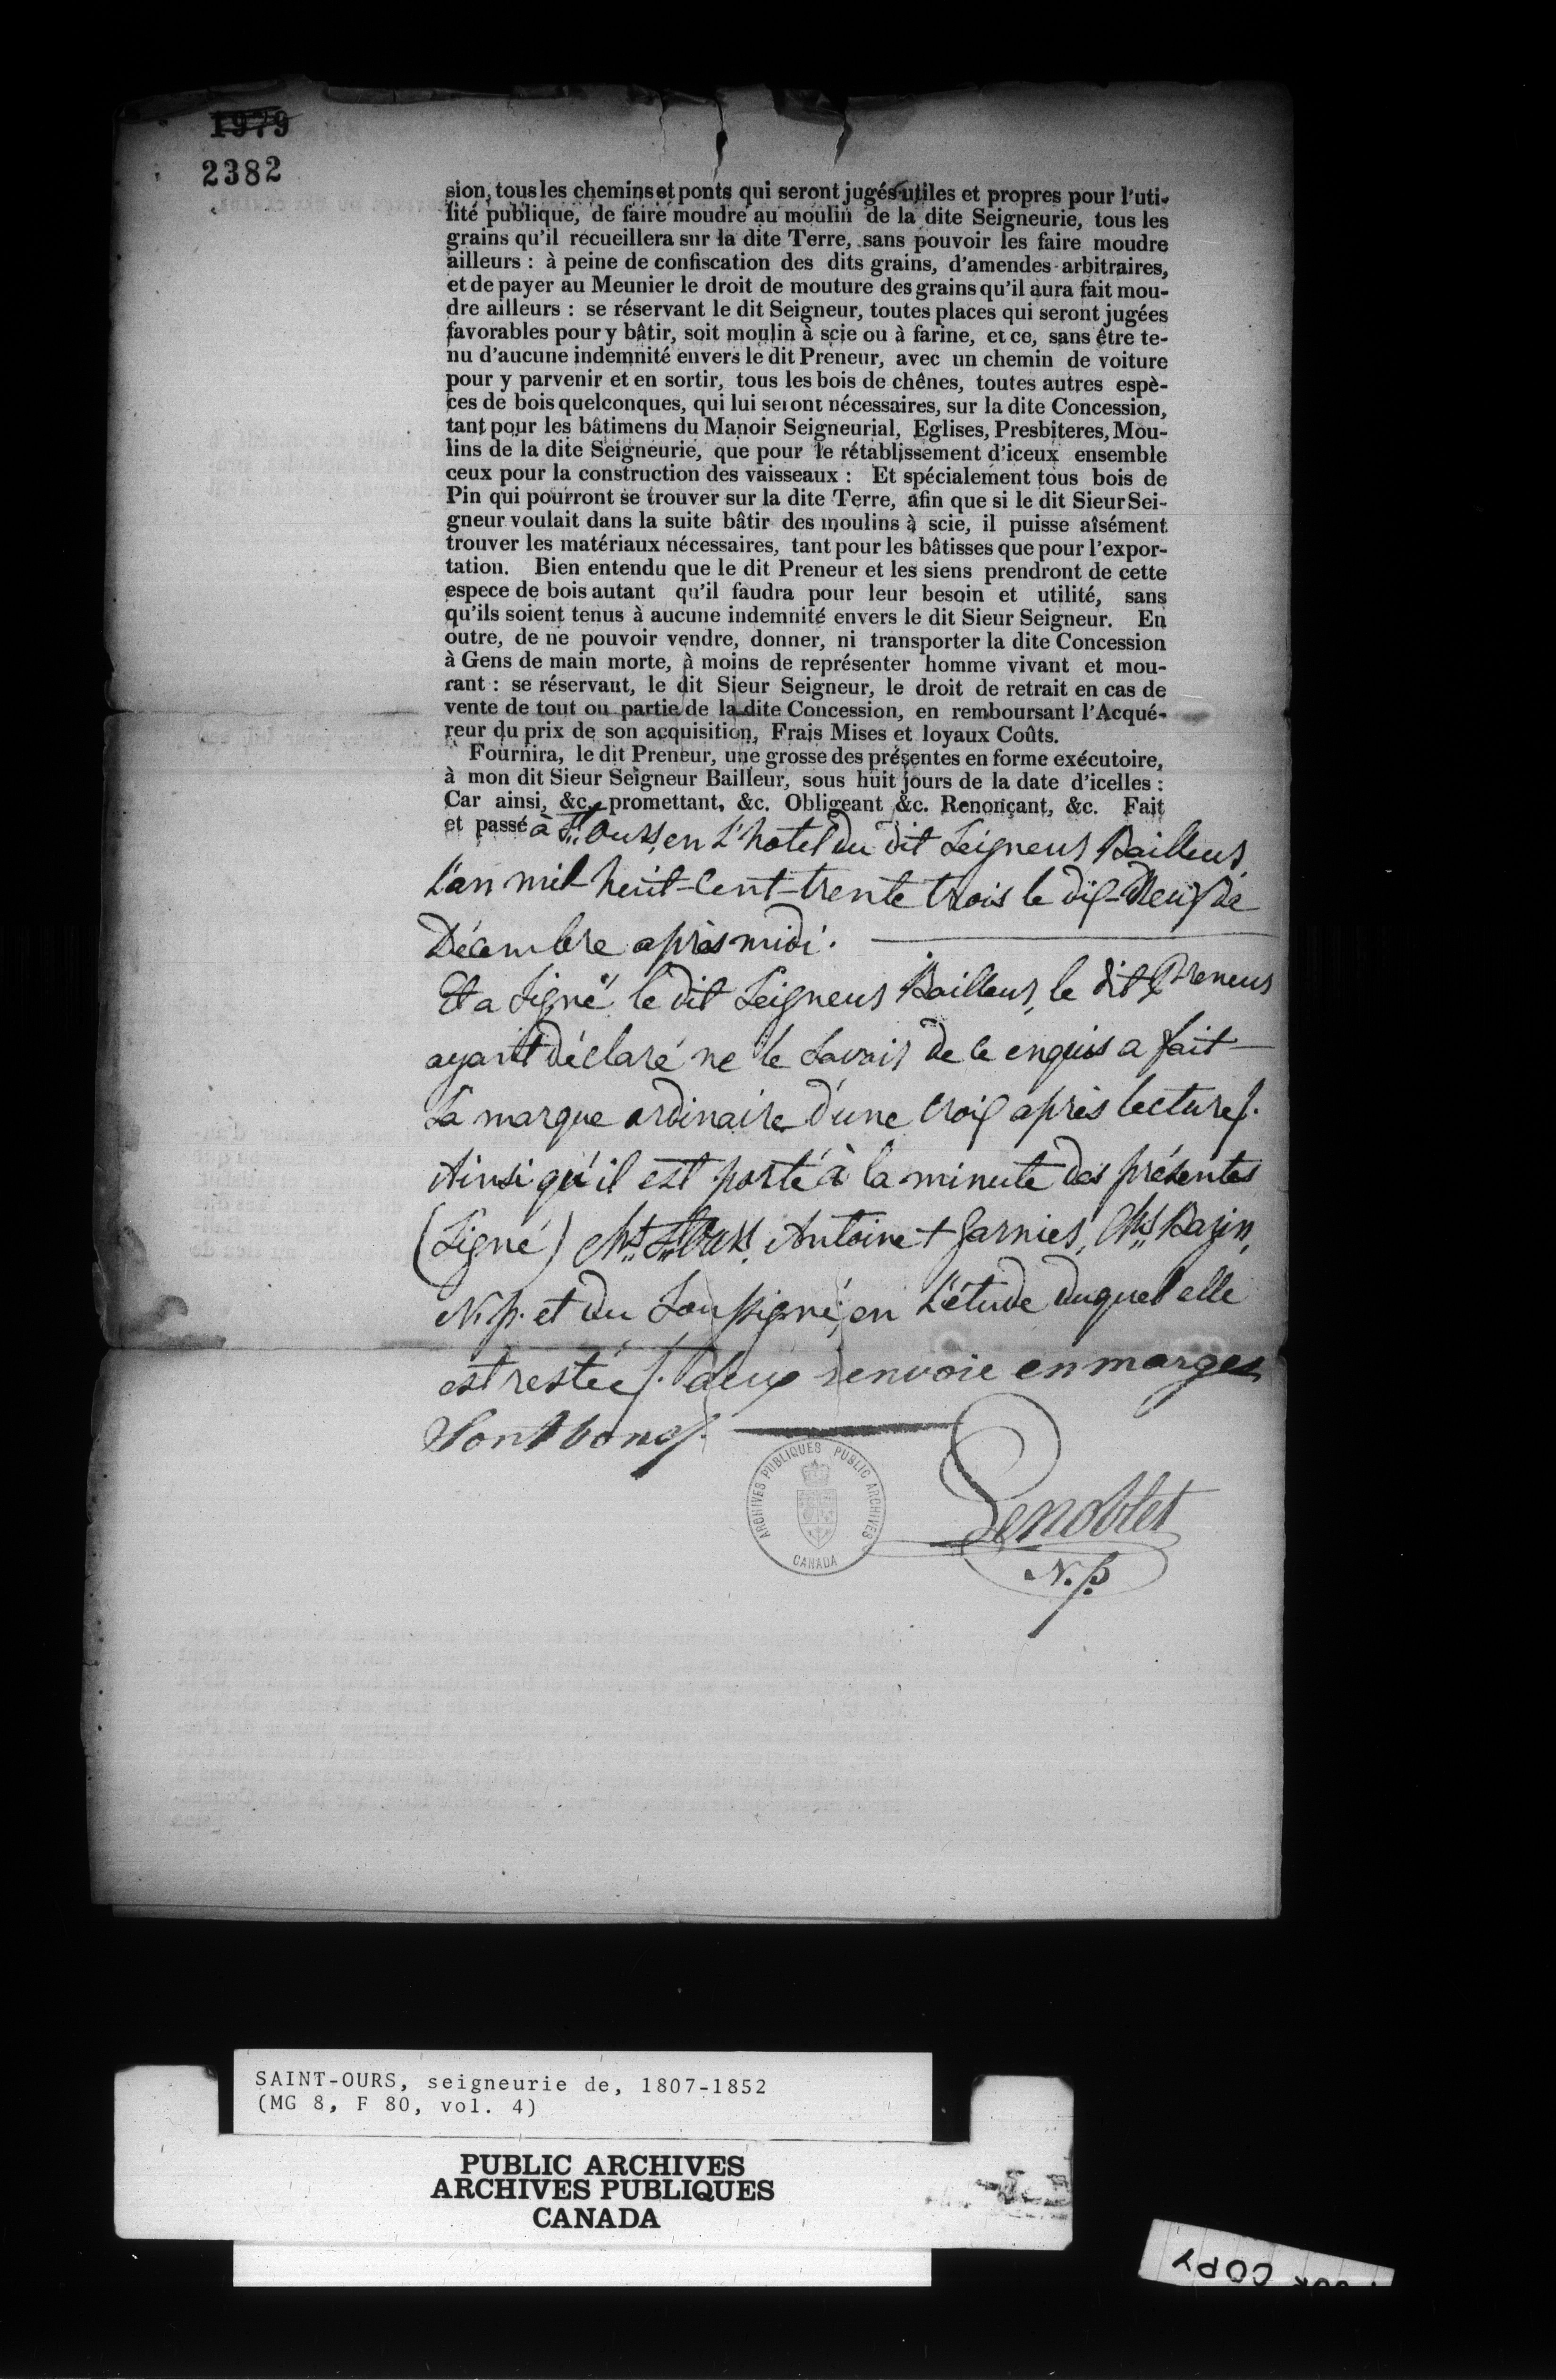 1979
2382
sion, tous les chemins et ponts qui seront jugés utiles et propres pour l'uti-
lité publique, de faire moudre au moulin de la dite Seigneurie, tous les
grains qu'il recueillera sur la dite Terre, sans pouvoir les faire moudre
ailleurs : à peine de confiscation des dits grains, d'amendes arbitraires,
et de payer au Meunier le droit de mouture des grains qu'il aura fait mou-
dre ailleurs : se réservant le dit Seigneur, toutes places qui seront jugées
favorables pour y bâtir, soit moulin à scie ou à farine, et ce, sans être te-
nu d'aucune indemnité envers le dit Preneur, avec un chemin de voiture
pour y parvenir et en sortir, tous les bois de chênes, toutes autres espè-
ces de bois quelconques, qui lui seront nécessaires, sur la dite Concession,
tant pour les bâtimens du Manoir Seigneurial, Eglises, Presbiteres, Mou-
lins de la dite Seigneurie, que pour le rétablissement d'iceux ensemble
ceux pour la construction des vaisseaux : Et spécialement tous bois de
Pin qui pourront se trouver sur la dite Terre, afin que si le dit Sieur Sei-
gneur voulait dans la suite bâtir des moulins à scie, il puisse aîsément
trouver les matériaux nécessaires, tant pour les bâtisses que pour l'expor-
tation. Bien entendu que le dit Preneur et les siens prendront de cette
espece de bois autant qu'il faudra pour leur besoin et utilité, sans
qu'ils soient tenus à aucune indemnité envers le dit Sieur Seigneur. En
outre, de ne pouvoir vendre, donner, ni transporter la dite Concession
à Gens de main morte, à moins de représenter homme vivant et mou-
rant : se réservant, le dit Sieur Seigneur, le droit de retrait en cas de
vente de tout ou partie de la dite Concession, en remboursant l'Acqué-
reur du prix de son acquisition, Frais Mises et loyaux Coûts.
Fournira, le dit Preneur, une grosse des présentes en forme exécutoire,
à mon dit Sieur Seigneur Bailleur, sous huit jours de la date d'icelles :
Car ainsi, &c. promettant, &c. Obligeant &c. Renonçant, &c. Fait
et passé à St. Ours, en L'hotel du dit Seigneur Bailleur,
L'an mil-huit-Cent-trente trois le dix-Neuf de
Décembre après midi.
Et a Signé le dit Seigneur Bailleur, le dit Preneur
ayant déclaré ne le Savoir de ce enquis a fait
Sa marque ordinaire d'une Croix après lecture/.
Ainsi qu'il est porté à la minute des présentes
(Signé) Chs. St. Ours, Antoine + Garnier, Chs. Bazin,
N.p. et du Soussigné, en L'étude duquel elle
est restée/. deux renvoie en marges
Sont bons/.
Lenoblet
N.p.
ARCHIVES PUBLIQUES PUBLIC ARCHIVES
CANADA
SAINT-OURS, seigneurie de, 1807-1852
(MG 8, F 80, vol. 4)
PUBLIC ARCHIVES
ARCHIVES PUBLIQUES
CANADA
COPY